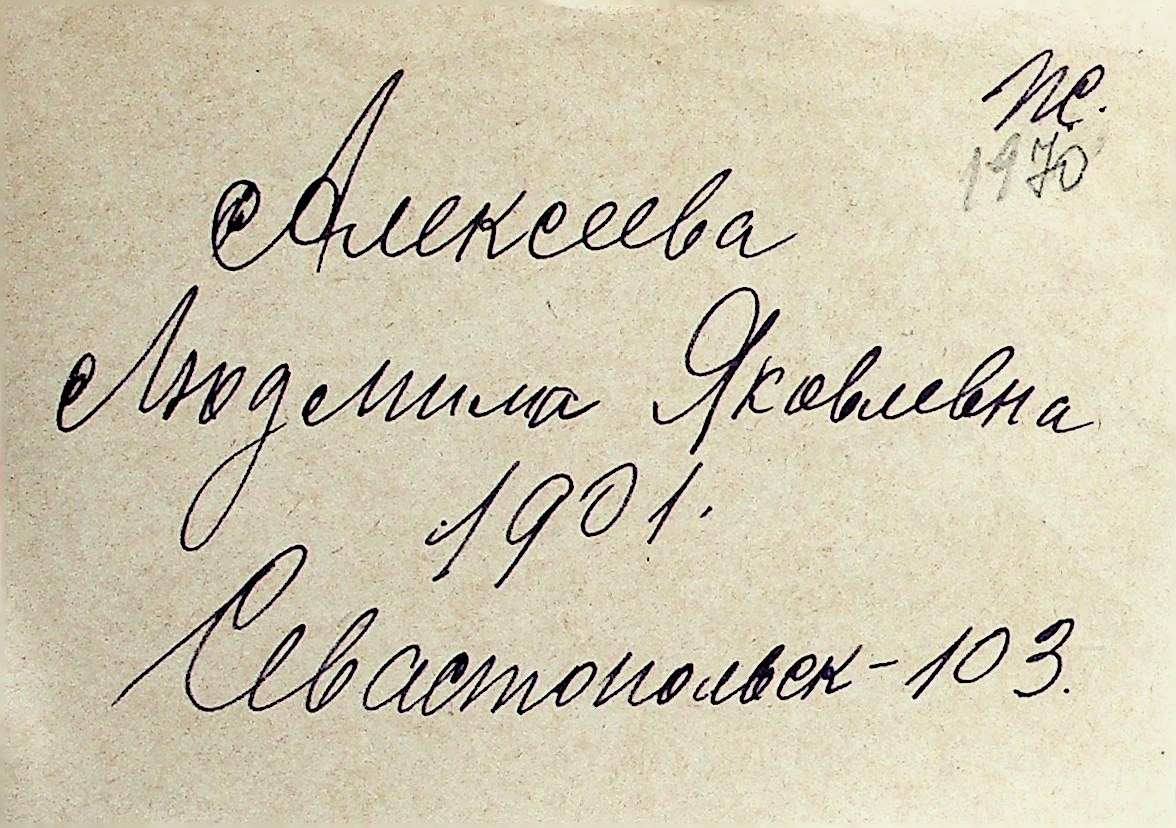 Алексеева
Людмила Яковлевна
1901.
Севастопольск-103.
1970